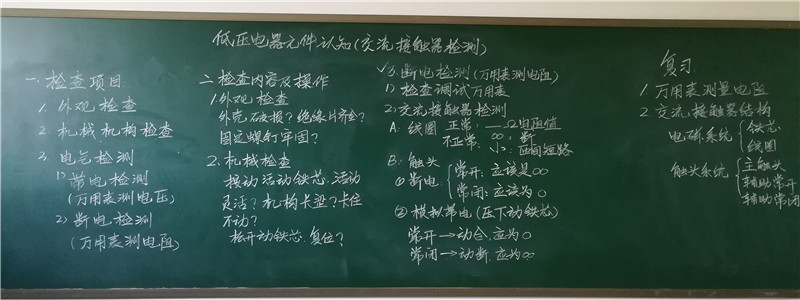 低压电器元件认知(交流接触器检测)
一、检查项目
1. 外观检查
2. 机械机构检查
3. 电气检测
1) 带电检测
(万用表测电压)
2) 断电检测
(万用表测电阻)
二、检查内容及操作
1. 外观检查
外壳破损?绝缘片齐全?
固定螺钉牢固?
2. 机械检查
拨动活动铁芯.活动
灵活?机构卡涩?卡住
不动?
松开动铁芯.复位?
✓3. 断电检测(万用表测电阻)
1) 检查调试万用表
2) 交流接触器检测
A: 线圈 正常: — Ω电阻值
不正常: ∞: 断
小: 匝间短路
B: 触头
① 断电 常开: 应该是∞
常闭: 应该为0
② 模拟带电(压下动铁芯)
常开→动合.应为0
常闭→动断.应为∞
复习
1. 万用表测量电阻
2. 交流接触器结构
电磁系统 铁芯
线圈
触头系统 主触头
辅助常开
辅助常闭